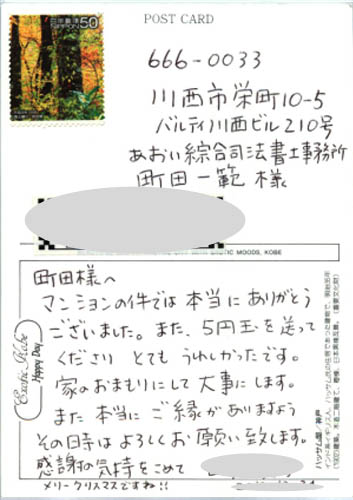 POST CARD
日本郵便
NIPPON 50
666-0033
川西市栄町10-5
パルティ川西ビル210号
あおい綜合司法書士事務所
町田一範 様
町田様へ
マンションの件では本当にありがとう
ございました。また、5円玉を送って
ください とてもうれしかったです。
家のおまもりにして大事にします。
また本当にご縁がありますよう
その日時はよろしくお願い致します。
感謝の気持をこめて
メリークリスマスですね!!
Exotic Kobe
Happy Day
ハッサム邸/神戸